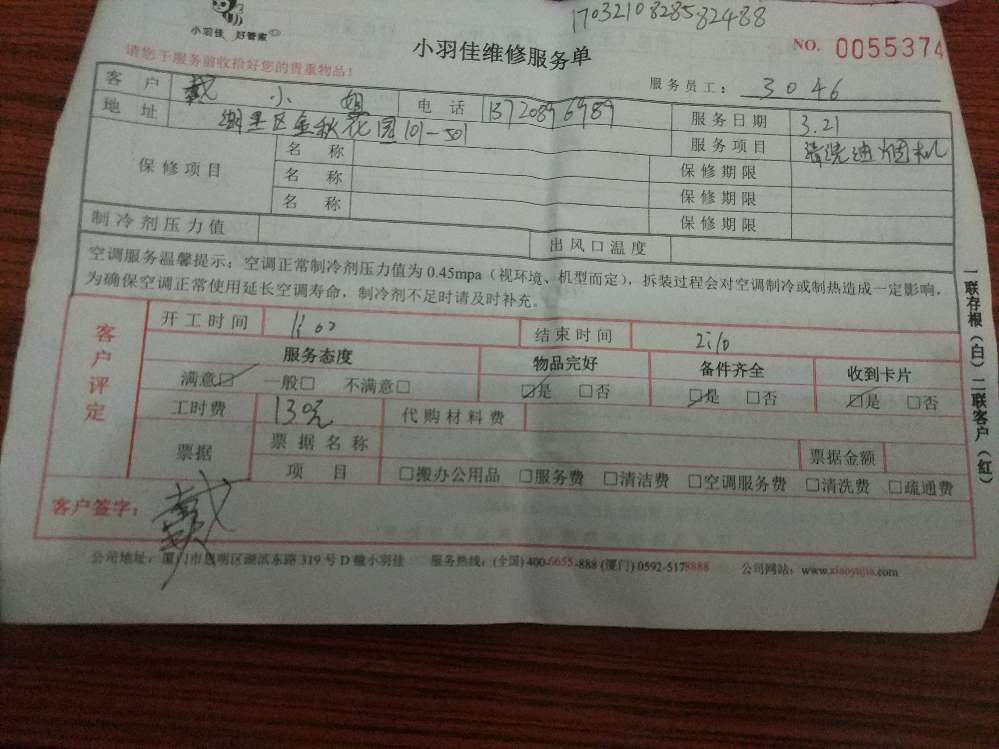 1703210828582488
小羽佳 好管家
小羽佳维修服务单
NO. 0055374
请您于服务前收拾好您的贵重物品！
服务员工： 3046
客户 戴小姐 电话 13720896989 服务日期 3.21
地址 湖里区金秋花园101-501 服务项目 清洗油烟机
保修项目 名称 保修期限
名称 保修期限
名称 保修期限
制冷剂压力值 出风口温度
空调服务温馨提示：空调正常制冷剂压力值为0.45mpa（视环境、机型而定），拆装过程会对空调制冷或制热造成一定影响，
为确保空调正常使用延长空调寿命，制冷剂不足时请及时补充。
客户评定
开工时间 结束时间
服务态度 物品完好 备件齐全 收到卡片
满意□ 一般□ 不满意□ □是 □否 □是 □否 □是 □否
工时费 130元 代购材料费
票据 票据名称 票据金额
项目 □搬办公用品 □服务费 □清洁费 □空调服务费 □清洗费 □疏通费
客户签字： 戴
公司地址：厦门市思明区湖滨东路319号D幢小羽佳 服务热线：(全国) 400-6655-888 (厦门) 0592-5178888 公司网站：www.xiaoyujia.com
一联存根（白）二联客户（红）